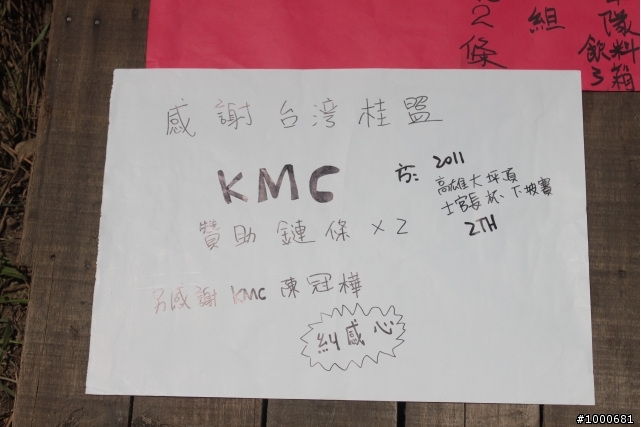 2條
組
隊
飲料3箱
感謝台湾桂盟
KMC
贊助鏈條×2
方: 2011
高雄大坪頂
士官長杯、下坡賽
2TH
另感謝 KMC 陳冠樺
糾感心
#1000681